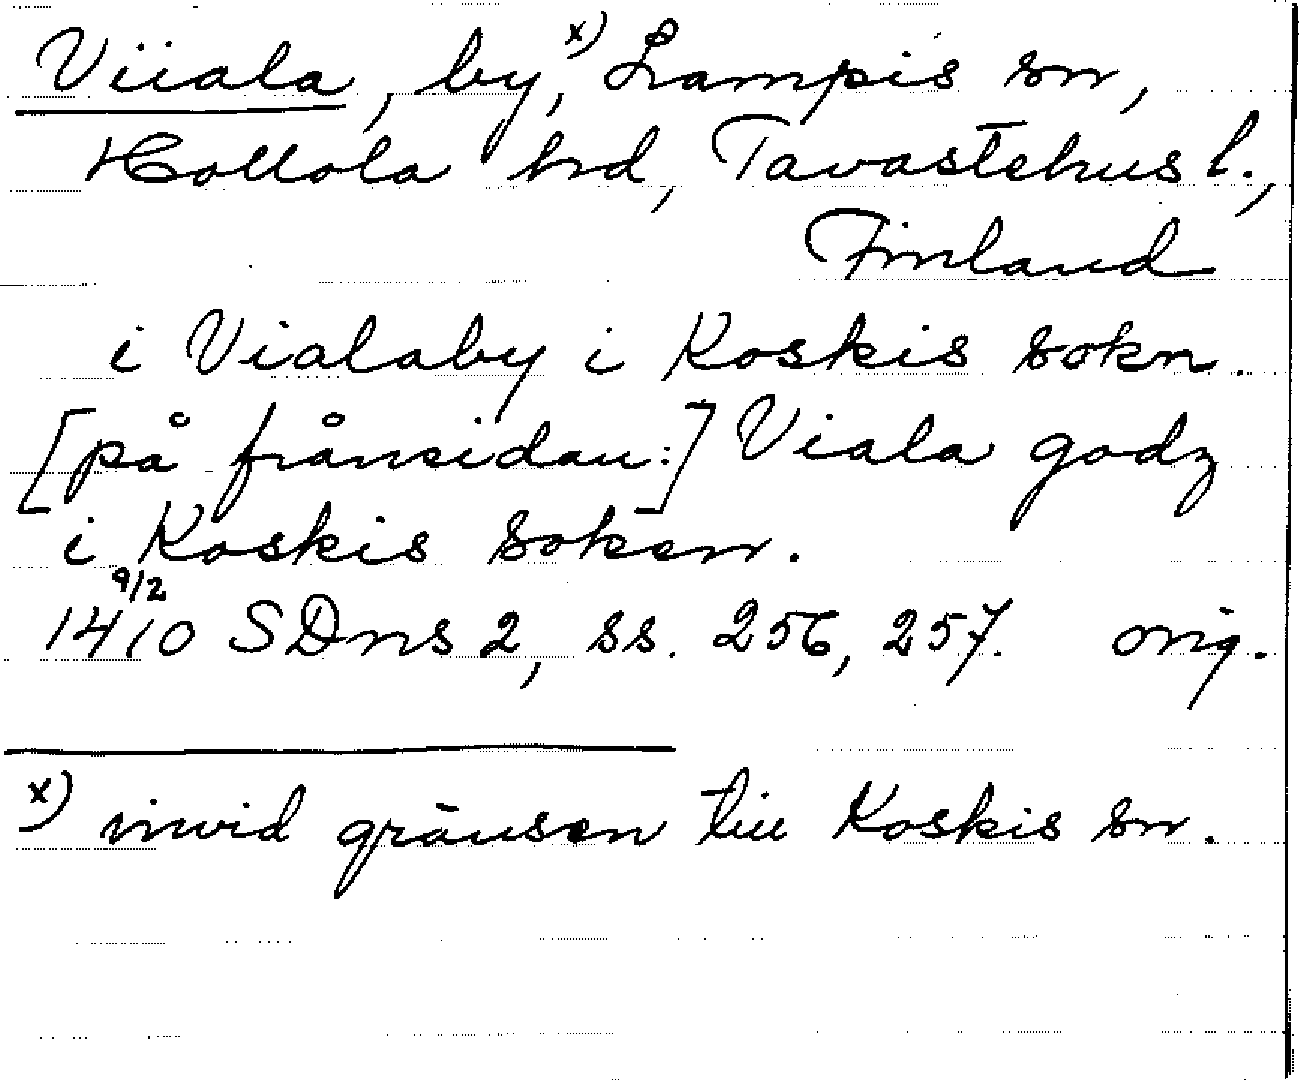 Viiala, by,ˣ⁾ Lampis sn,
Hollola hrd, Tavastehus l.,
Finland
i Vialaby i Koskis sokn.
[på frånsidan:] Viala godz
i Koskis soken.
14 9/2 10 SDns 2, ss. 256, 257. orig.
x) invid gränsen till Koskis sn.